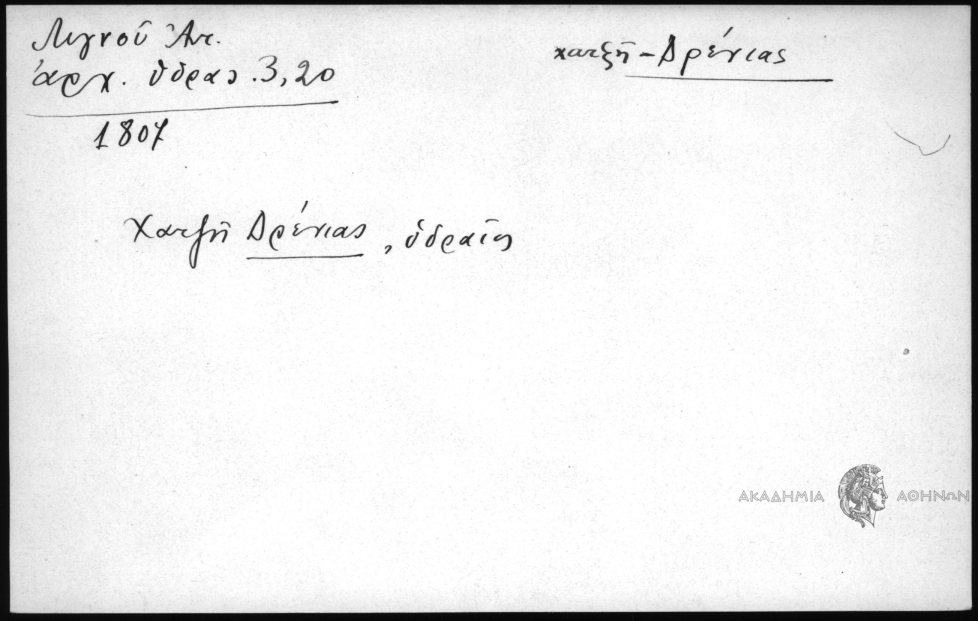 Λιγνοῦ Ἀντ.
ἀρχ. Ὕδρας. 3, 20
1807
χατζῆ-Δρένιας
Χατζῆ Δρένιας, ὑδραῖος
ΑΚΑΔΗΜΙΑ ΑΘΗΝΩΝ